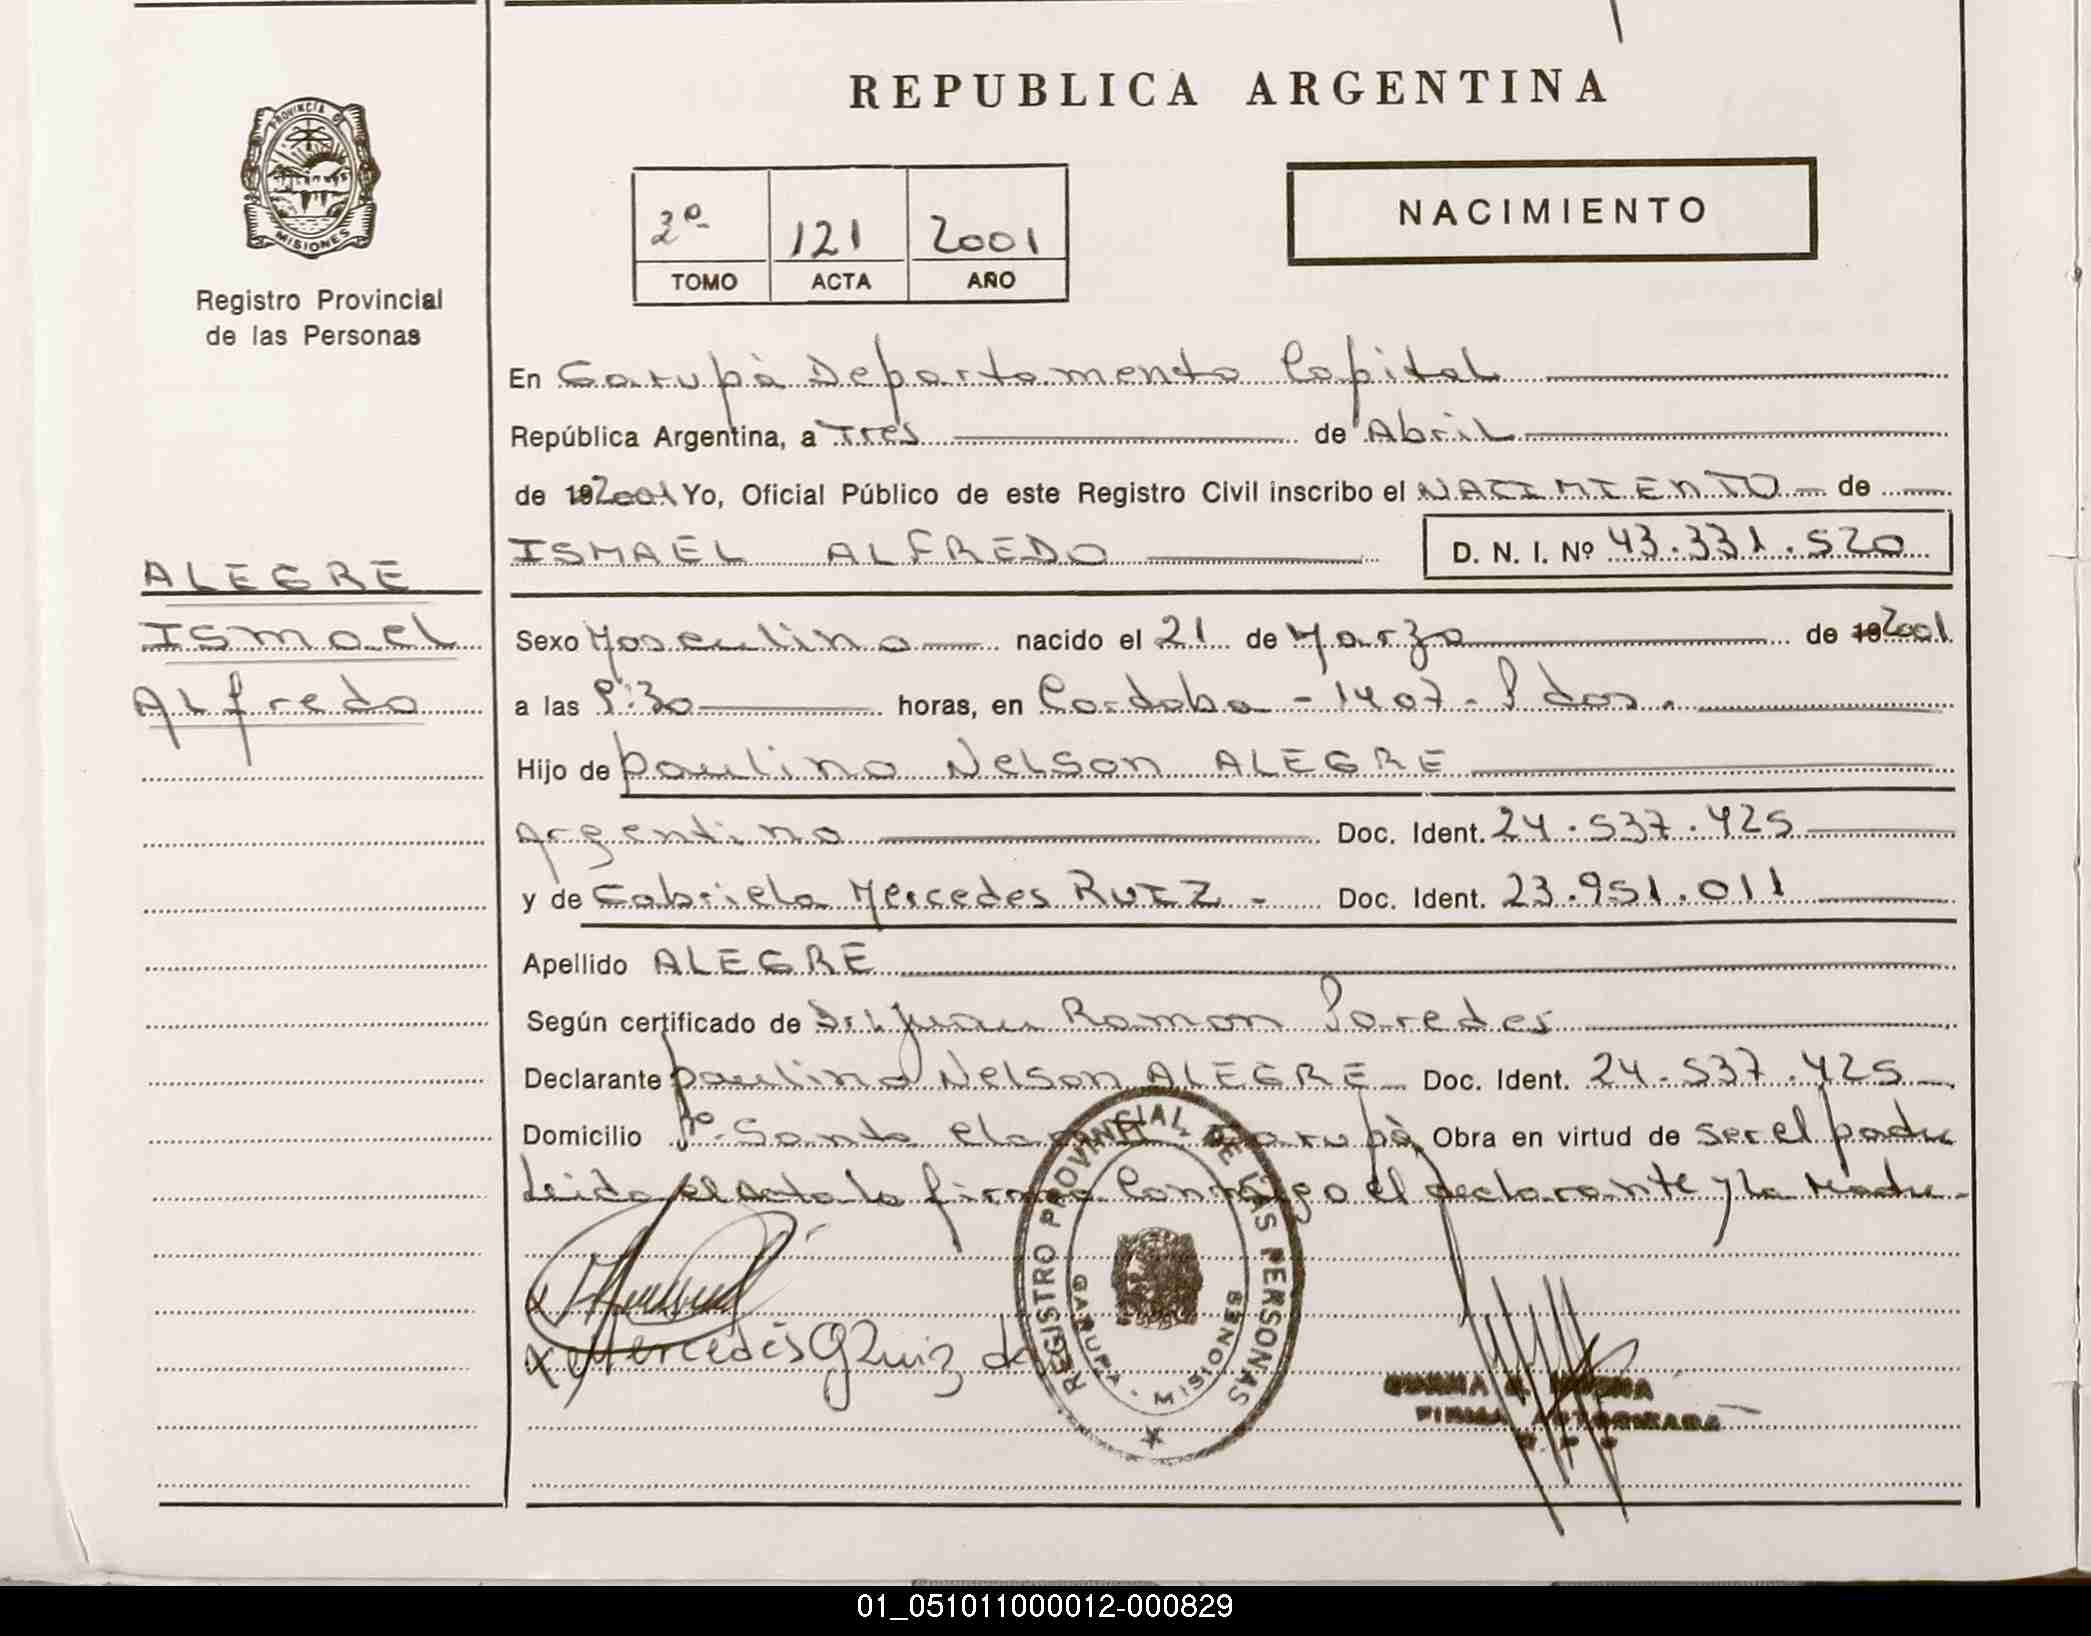 REPUBLICA ARGENTINA
PROVINCIA DE
MISIONES
Registro Provincial
de las Personas
2º 121 2001
TOMO ACTA AÑO
NACIMIENTO
En Garupà Departamento Capital
República Argentina, a Tres de Abril
de 192001 Yo, Oficial Público de este Registro Civil inscribo el NACIMIENTO de
ISMAEL ALFREDO D. N. I. Nº 43.331.520
ALEGRE
Ismael
Alfredo
Sexo Masculino nacido el 21 de Marzo de 192001
a las 9:30 horas, en Cordoba - 1407 - Pdas.
Hijo de Paulino Nelson ALEGRE
Argentino Doc. Ident. 24.537.425
y de Gabriela Mercedes RUIZ - Doc. Ident. 23.951.011
Apellido ALEGRE
Según certificado de Dr. Juan Ramon Paredes
Declarante Paulino Nelson ALEGRE Doc. Ident. 24.537.425
Domicilio Bº Santa Garupà Obra en virtud de ser el padre
Leida el acta la firman Conmigo el declarante y la Madre -
Mercedes G Ruiz de
REGISTRO PROVINCIAL DE LAS PERSONAS
GARUPA - MISIONES
FIRMA AUTORIZADA
01_051011000012-000829